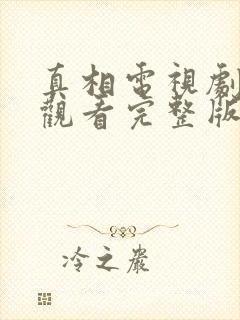 真相電視劇
觀看完整版
冷之嚴